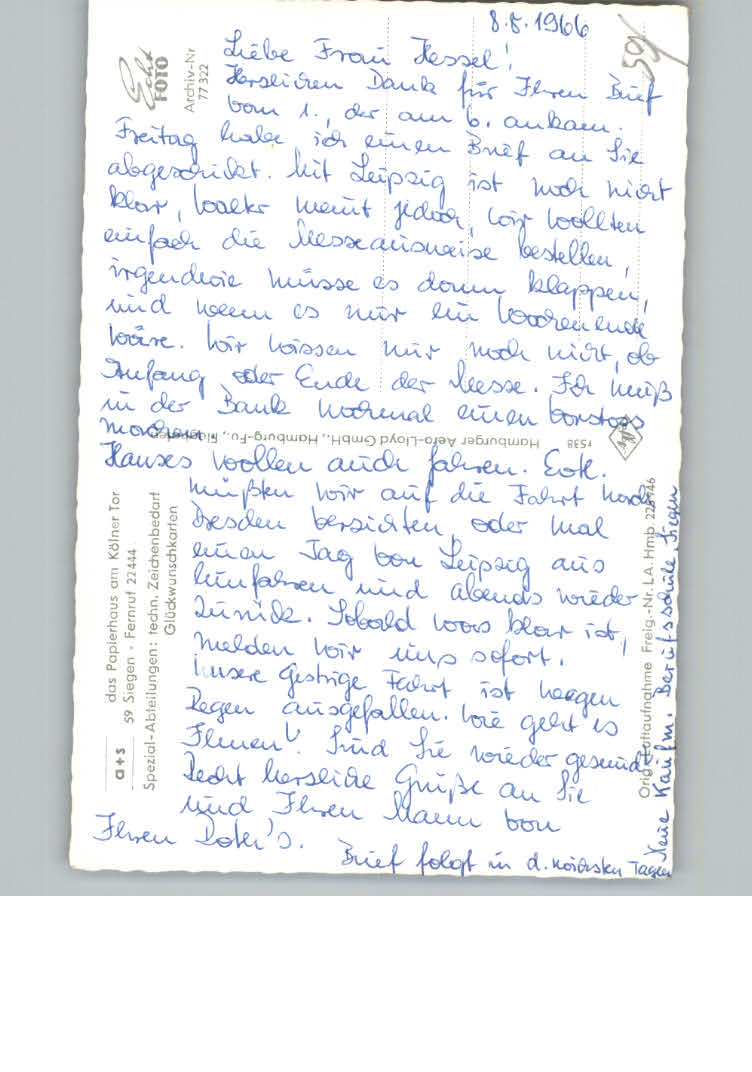 8.8.1966
59
Liebe Frau Hessel!
Herzlichen Dank für Ihren Brief
vom 1., der am 6. ankam.
Freitag habe ich einen Brief an Sie
abgeschickt. Mit Leipzig ist noch nicht
klar, Walter meint jedoch, wir wollten
einfach die Messeausweise bestellen,
irgendwie müsse es dann klappen,
und wenn es nur ein Wochenende
wäre. Wir wissen nur noch nicht, ob
Anfang oder Ende der Messe. Ich muß
in der Bank nochmal einen Vorstoß
machen.
Hauses wollen auch fahren. Evtl.
müßten wir auf die Fahrt nach
Dresden verzichten, oder mal
einen Tag von Leipzig aus
hinfahren und abends wieder
zurück. Sobald was klar ist,
melden wir uns sofort.
Unsere gestrige Fahrt ist wegen
Regen ausgefallen. Wie geht es
Ihnen? Sind Sie wieder gesund?
Recht herzliche Grüße an Sie
und Ihren Mann von
Ihren
Brief folgt in d. nächsten Tagen
Neue Kaufm. Berufsschule, Siegen
Echt
FOTO
Archiv-Nr
77 322
Hamburger Aero-Lloyd GmbH., Hamburg-Fu.,
r538
a+s
das Papierhaus am Kölner Tor
59 Siegen - Fernruf 22444
Spezial-Abteilungen: techn. Zeichenbedarf
Glückwunschkarten
Orig.-Luftaufnahme Freig.-Nr. LA. Hmb.